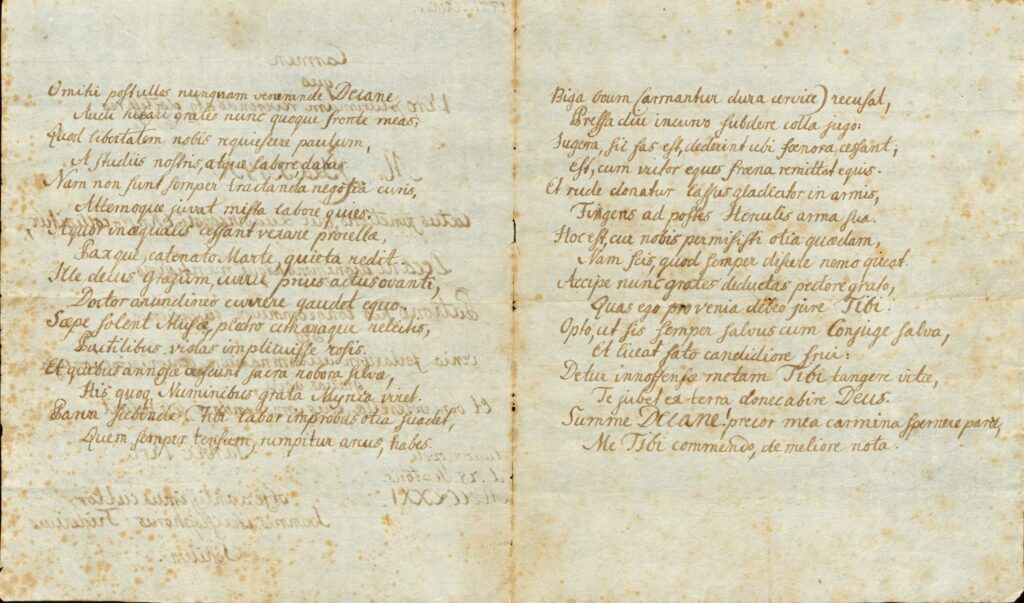 Omihi post ullos nunquam venerande Decane
Audi hilari grates nunc quoque fronte meas;
Quod libertatem nobis requiescere paulum,
A studiis nostris, atque labore datas.
Nam non sunt semper tractanda negotia curis,
Alternoque juvat mista labore quies:
Aequor inaequales cessant vexare procellae,
Paxque, catenato Marte, quieta redit.
Ille decus Grajum, curru prius actus ovanti,
Doctor arundineo currere gaudet equo.
Saepe solent Musae, plectro citharaque relictis,
Pactilibus violas implicuisse rosis.
Et quibus annosae crescunt sacra robora silvae,
His quoq Numinibus grata Myrica viret.
Parva Tibi labor improbus otia suadet,
Quem semper tensum, rumpitur arcus, habes.
Biga boum sarmantur dura cervice) recusat,
Pressa diu incurvo subdere colla jugo:
Jugera, sic fas est, dederint ubi foenora, cessant;
Est, cum victor eques fraena remittat equis.
Et rude donatur lassus gladiator in armis,
Fingens ad postes Herculis arma sua.
Hoc est, cur nobis permisisti otia quaedam,
Nam scis, quod semper discere nemo queat.
Accipe nunc grates deductas pectore grato,
Quas ego pro venia debeo jure Tibi.
Opto, ut sis semper salvus cum Conjuge salva,
Et liceat fato candidiore frui:
Detur inoffensae metam Tibi tangere vitae,
Te jubet ex terra donec abire Deus.
Summe Decane! precor mea carmina spernere parce,
Me Tibi commendo, de meliore nota.